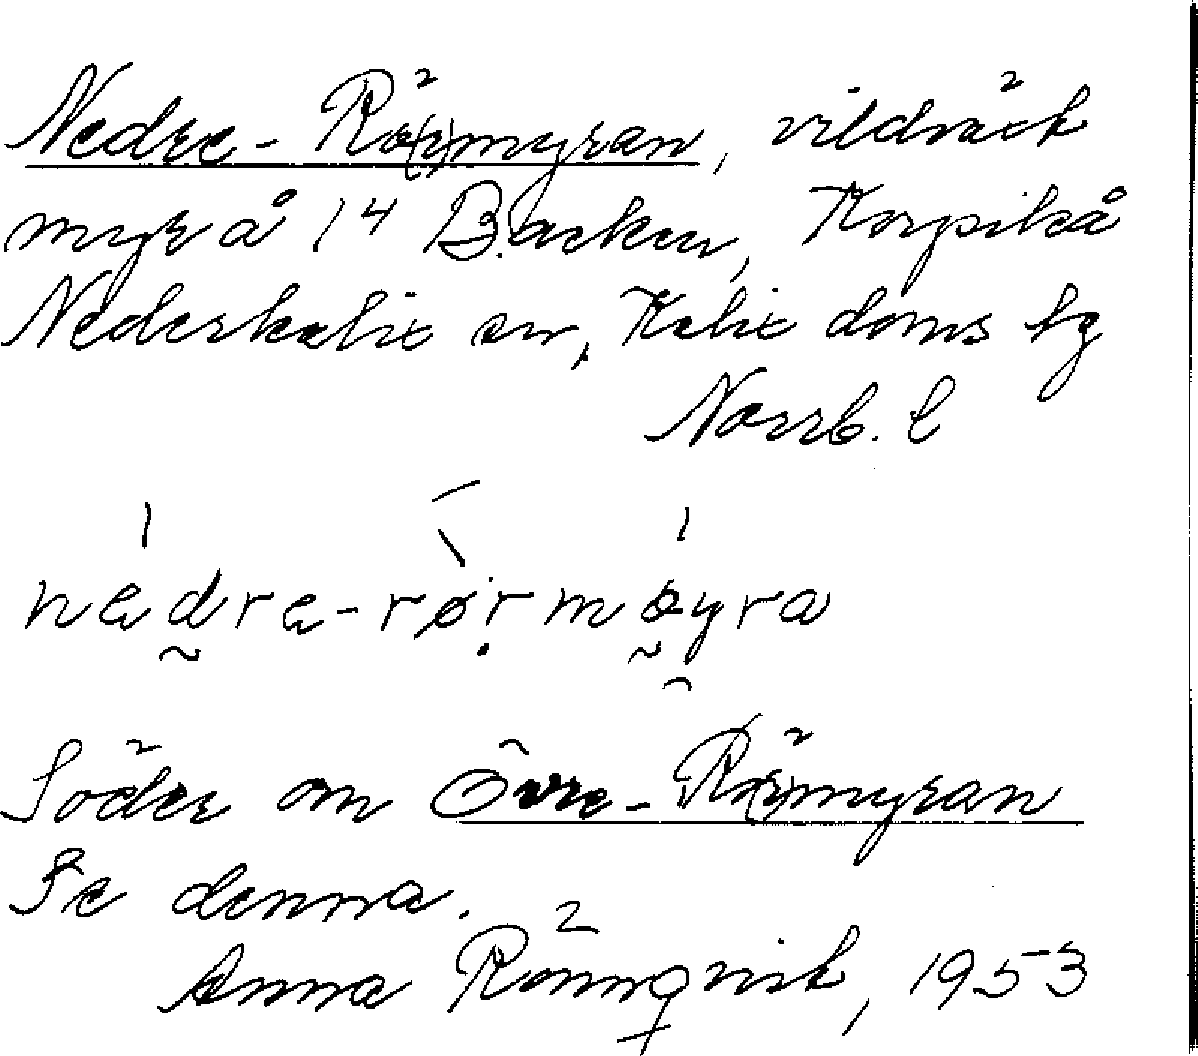 Nedre-Rö(r)myran, vildväxt
myr å 14 Backen, Korpikå
Nederkalix sn, Kalix doms tg
Norrb. l
nedre-rør myra
Söder om Övre-Rö(r)myran
Se denna.
Anna Rönnqvist, 1953